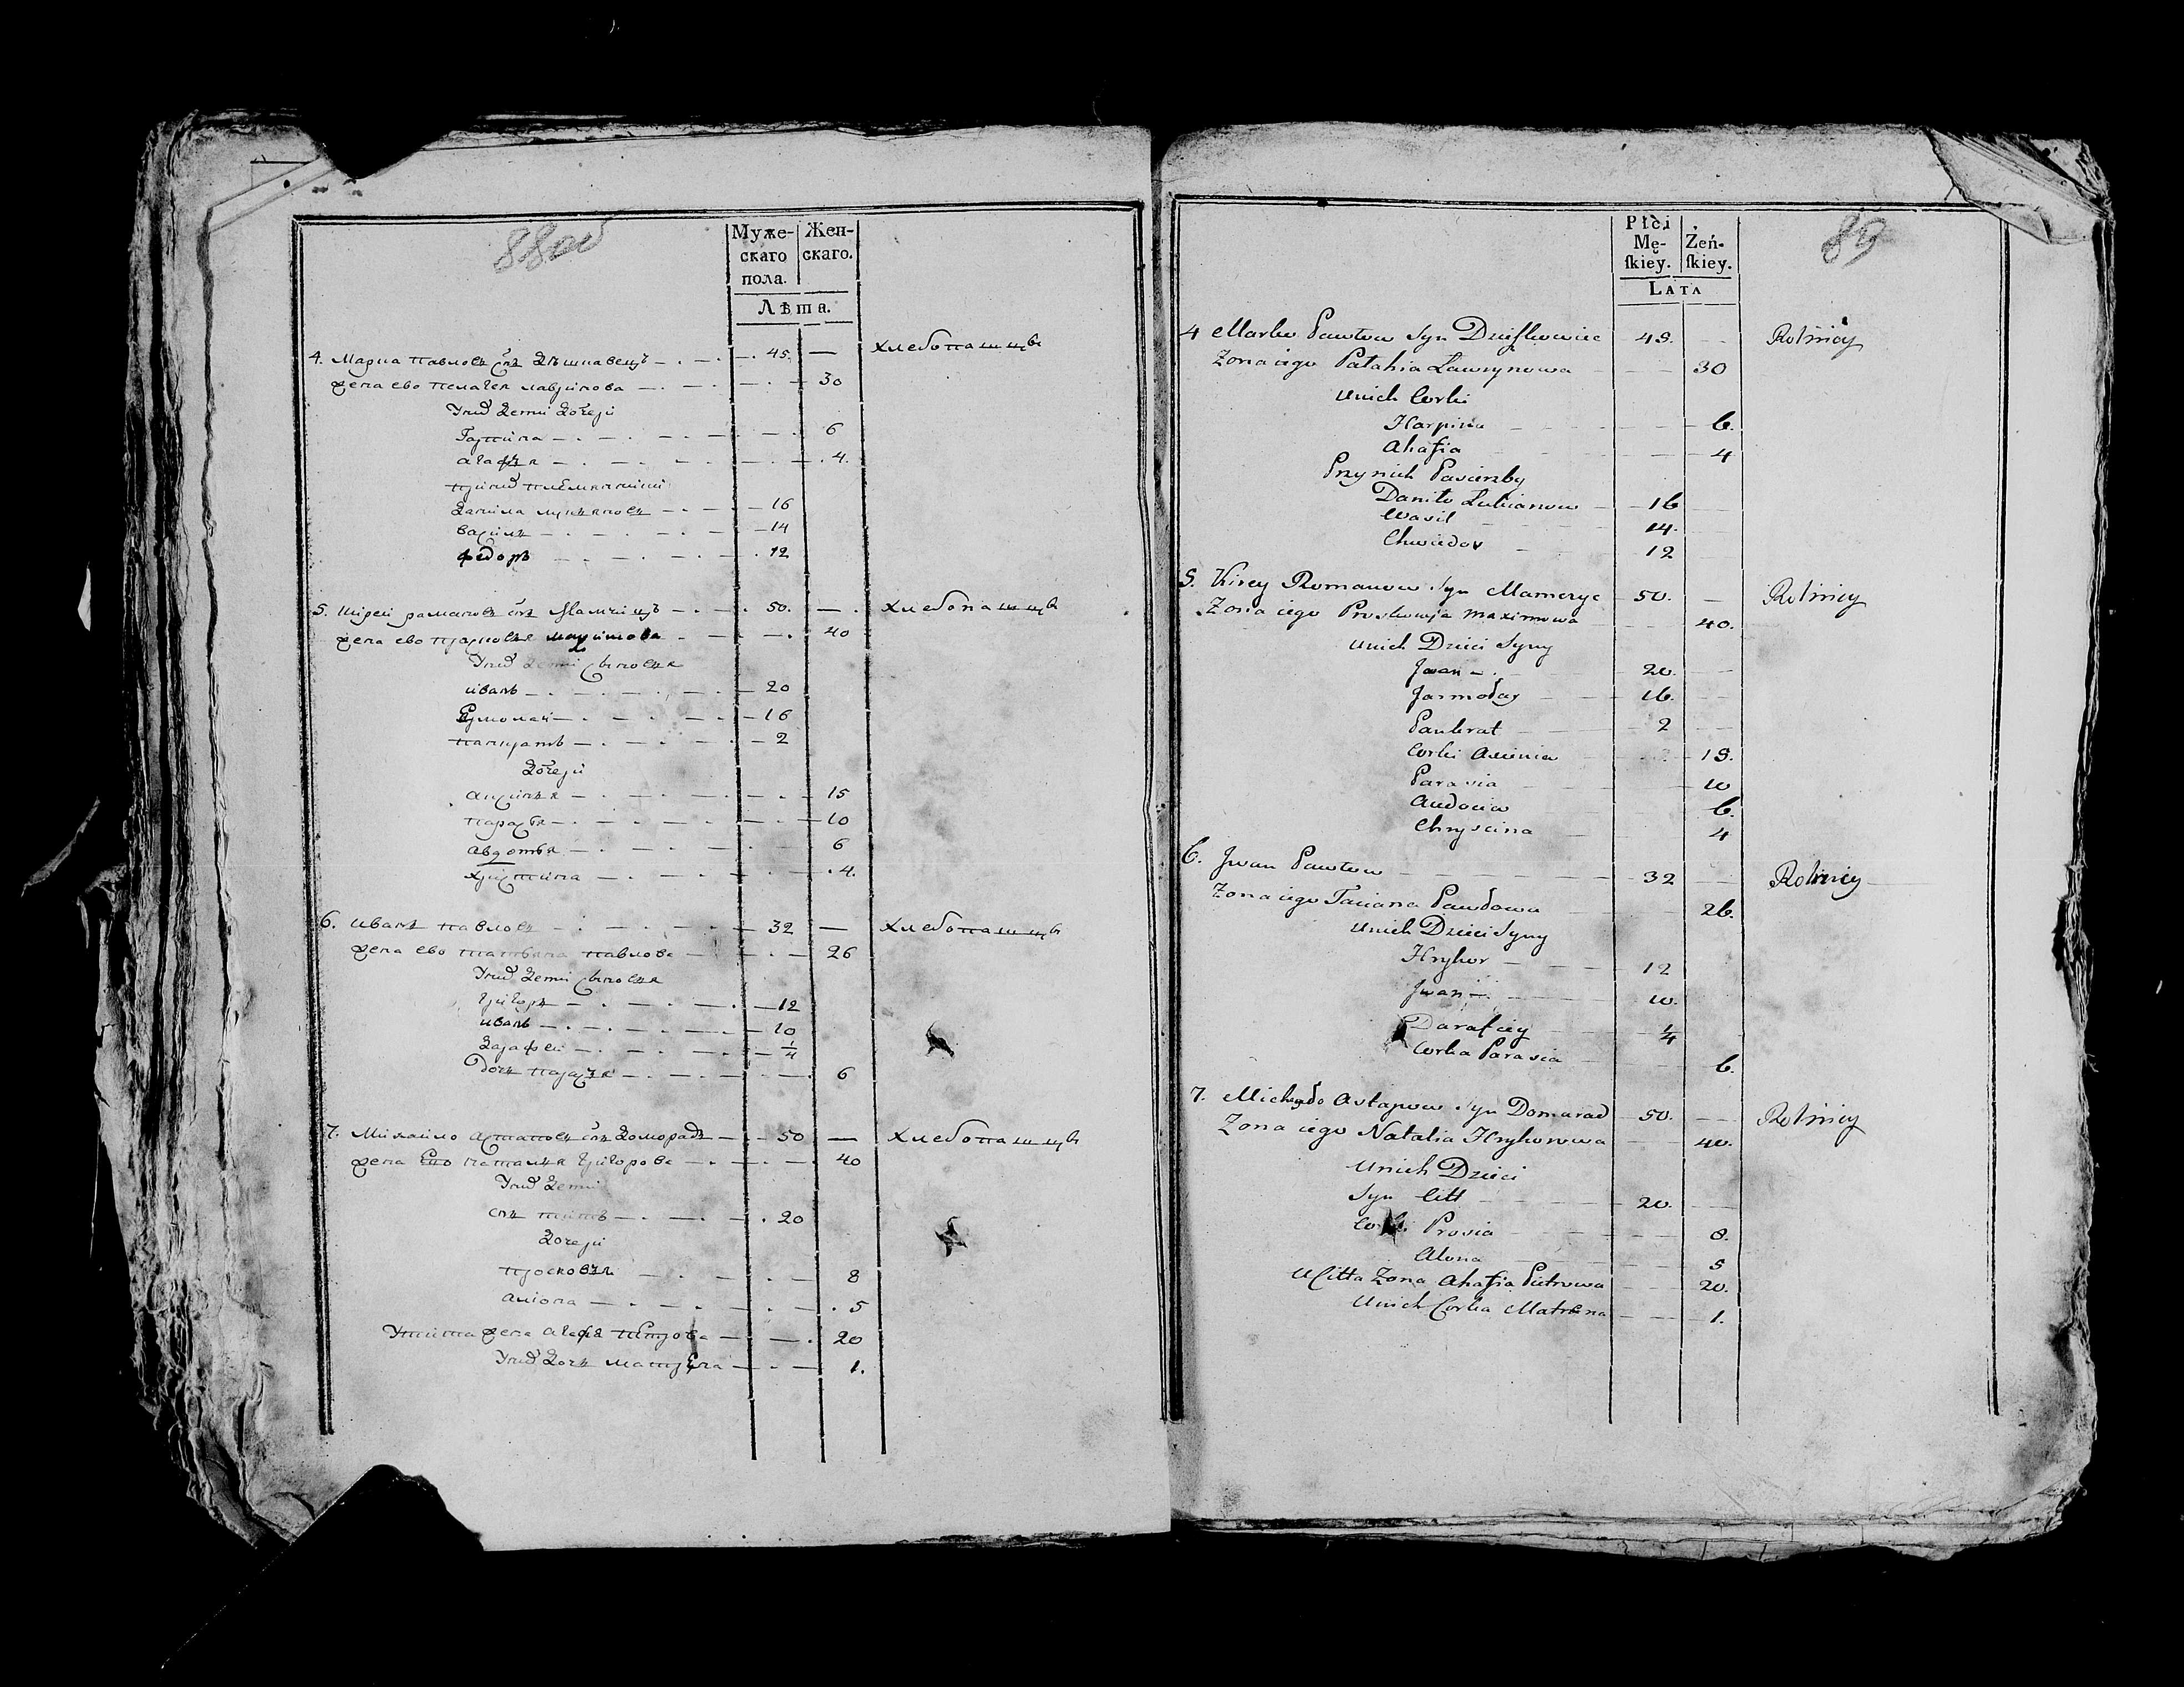 88об
Муже-
скаго
пола.
Жен-
скаго.
Лѣта.
4. Марка павловъ снъ — 45. — хлебопашцы
жена ево пелагея лаврынова — 30
У нихъ дети дочери
Гарпина — 6
агафья — 4.
при нихъ
данила лукьяновъ — 16
василь — 14
федоръ — 12
5. Кирей романовъ снъ — 50. — хлебопашцы
жена ево прасковья максимова — 40
У нихъ дети сыновья
иванъ — 20
Ермолай — 16
панкратъ — 2
дочери
аксинья — 15
парасья — 10
авдотья — 6
христина — 4.
6. иванъ павловъ — 32 — хлебопашцы
жена ево татьяна павлова — 26
У нихъ дети сыновья
григоръ — 12
иванъ — 10
дарафей — 1/4
дочь парасья — 6
7. Михайло астаповъ снъ домарадъ — 50 — хлебопашцы
жена Ево наталья григорова — 40
У нихъ дети
снъ титъ — 20
дочери
просковья — 8
алiона — 5
У тита жена агафья петрова — 20
У нихъ дочь матрена — 1.
89
Płci
Mę-
ſkiey.
Żeń-
ſkiey.
LATA
4 Marko Pawłow Syn — 45. — Rolnicy
Zona iego Pałahia Ławrynowa — 30
U nich Corki
Harpina — 6.
Ahafia — 4
Przy nich Pasierzby
Daniło Łukianow — 16
Wasil — 14.
Chwiedor — 12
5. Kirey Romanow Syn Mameryc — 50. — Rolnicy
Zona iego Proskowja Maximowa — 40.
U nich Dzieci Syny
Jwan — 20.
Jarmołay — 16.
Pankrat — 2
Corki Axienia — 15.
Parasia — 10
Audocia — 6.
Chryscina — 4
6. Jwan Pawłow — 32 — Rolnicy
Zona iego Taciana Pawłowa — 26.
U nich Dzieci Syny
Hryhor — 12
Jwan — 10.
Darafiey — 1/4
Corka Parasia — 6.
7. Michayło Astapow Syn Domarad — 50. — Rolnicy
Zona iego Natalia Hryhorowa — 40.
U nich Dzieci
Syn Citt — 20.
Corki Prosia — 8.
Alona — 5
U Citta Zona Ahafia Pietrowa — 20.
U nich Corka Matrena — 1.